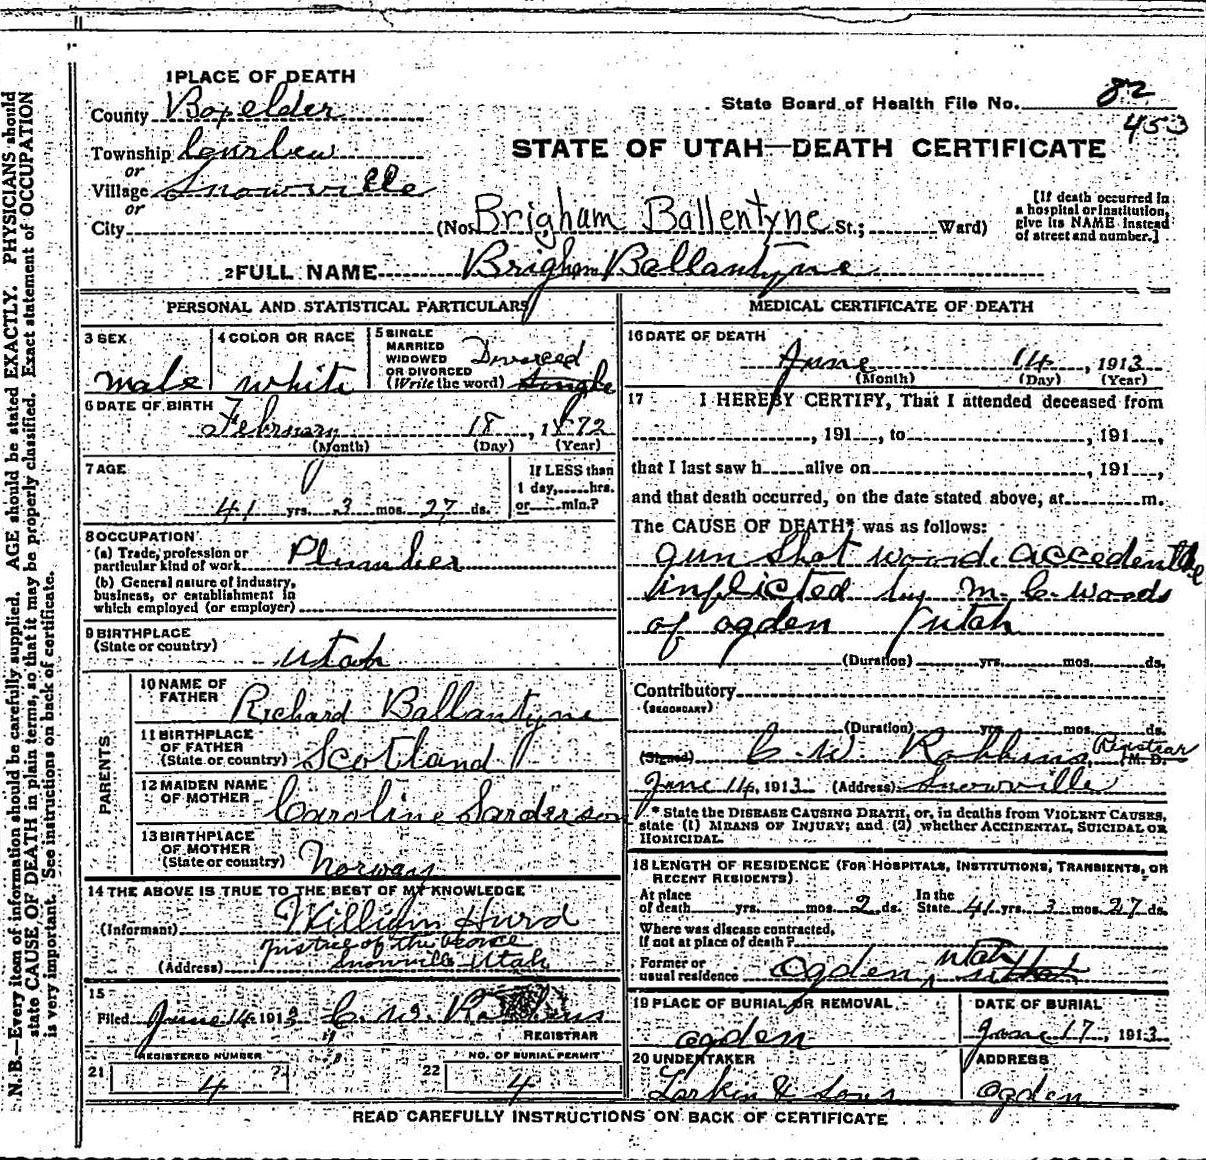 1 PLACE OF DEATH
County Boxelder
State Board of Health File No. 82
453
Township Curlew
or
Village Snowville
or
City
STATE OF UTAH—DEATH CERTIFICATE
(No. Brigham Ballentyne St.; Ward)
[If death occurred in
a hospital or institution,
give its NAME instead
of street and number.]
2 FULL NAME Brigham Ballantyne
PERSONAL AND STATISTICAL PARTICULARS
3 SEX
male
4 COLOR OR RACE
white
5 SINGLE
MARRIED
WIDOWED
OR DIVORCED
(Write the word)
Divorced
Single
6 DATE OF BIRTH
February 18, 1872
(Month) (Day) (Year)
7 AGE
41 yrs. 3 mos. 27 ds.
If LESS than
1 day, hrs.
or min.?
8 OCCUPATION
(a) Trade, profession or
particular kind of work Plumber
(b) General nature of industry,
business, or establishment in
which employed (or employer)
9 BIRTHPLACE
(State or country)
utah
PARENTS
10 NAME OF
FATHER
Richard Ballantyne
11 BIRTHPLACE
OF FATHER
(State or country) Scotland
12 MAIDEN NAME
OF MOTHER
Caroline Sanderson
13 BIRTHPLACE
OF MOTHER
(State or country) Norway
14 THE ABOVE IS TRUE TO THE BEST OF MY KNOWLEDGE
(Informant) William Hurd
Justice of the peace
(Address) Snowville Utah
15
Filed June 14 1913 C. W. Robbins
REGISTRAR
REGISTERED NUMBER
21 4
NO. OF BURIAL PERMIT
22 4
MEDICAL CERTIFICATE OF DEATH
16 DATE OF DEATH
June 14, 1913
(Month) (Day) (Year)
17 I HEREBY CERTIFY, That I attended deceased from
, 191 , to , 191 ,
that I last saw h alive on , 191 ,
and that death occurred, on the date stated above, at m.
The CAUSE OF DEATH* was as follows:
gun shot woond. accedentle
inflicted by M. C. Woods
of ogden utah
(Duration) yrs. mos. ds.
Contributory
(SECONDARY)
(Duration) yrs. mos. ds.
(Signed) C. W. Robbins Registrar M. D.
June 14, 1913 (Address) Snowville
* State the DISEASE CAUSING DEATH, or, in deaths from VIOLENT CAUSES,
state (1) MEANS OF INJURY; and (2) whether ACCIDENTAL, SUICIDAL OR
HOMICIDAL.
18 LENGTH OF RESIDENCE (FOR HOSPITALS, INSTITUTIONS, TRANSIENTS, OR
RECENT RESIDENTS).
At place
of death yrs. mos. 2 ds.
In the
State 41 yrs. 3 mos. 27 ds.
Where was disease contracted,
if not at place of death?
Former or
usual residence ogden, utah
19 PLACE OF BURIAL OR REMOVAL
ogden
DATE OF BURIAL
June 17, 1913
20 UNDERTAKER
Larkin & Sons
ADDRESS
ogden
READ CAREFULLY INSTRUCTIONS ON BACK OF CERTIFICATE
N. B.—Every item of information should be carefully supplied. AGE should be stated EXACTLY. PHYSICIANS should
state CAUSE OF DEATH in plain terms, so that it may be properly classified. Exact statement of OCCUPATION
is very important. See instructions on back of certificate.